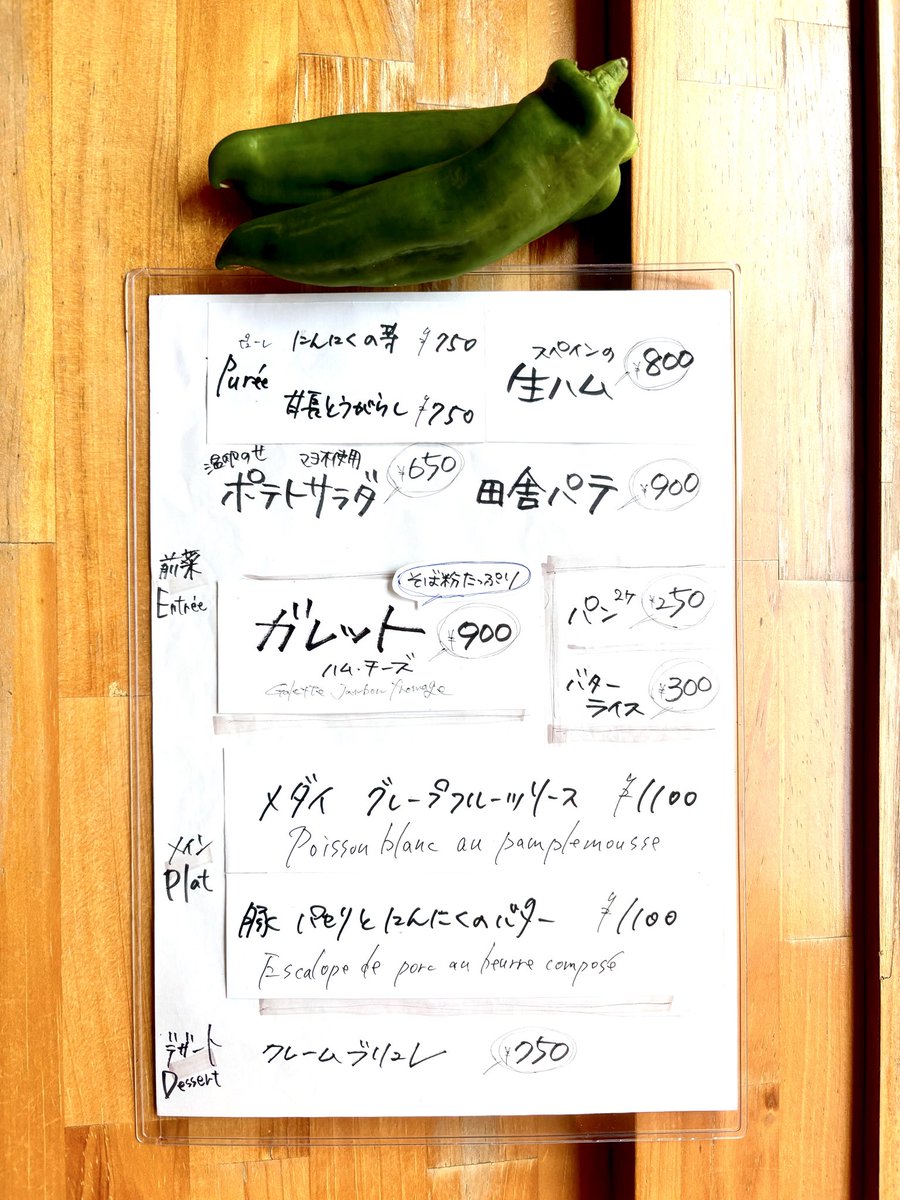 ピューレ
Purée
にんにくの芽 ¥750
甘長とうがらし ¥750
スペインの
生ハム ¥800
温卵のせ マヨ不使用
ポテトサラダ ¥650
田舎パテ ¥900
前菜
Entrée
そば粉たっぷり
ガレット ¥900
ハム・チーズ
Galette Jambon fromage
パン2ケ ¥250
バター
ライス ¥300
メイン
Plat
メダイ グレープフルーツソース ¥1100
Poisson blanc au pamplemousse
豚 パセリとにんにくのバター ¥1100
Escalope de porc au beurre composé
デザート
Dessert
クレームブリュレ ¥750